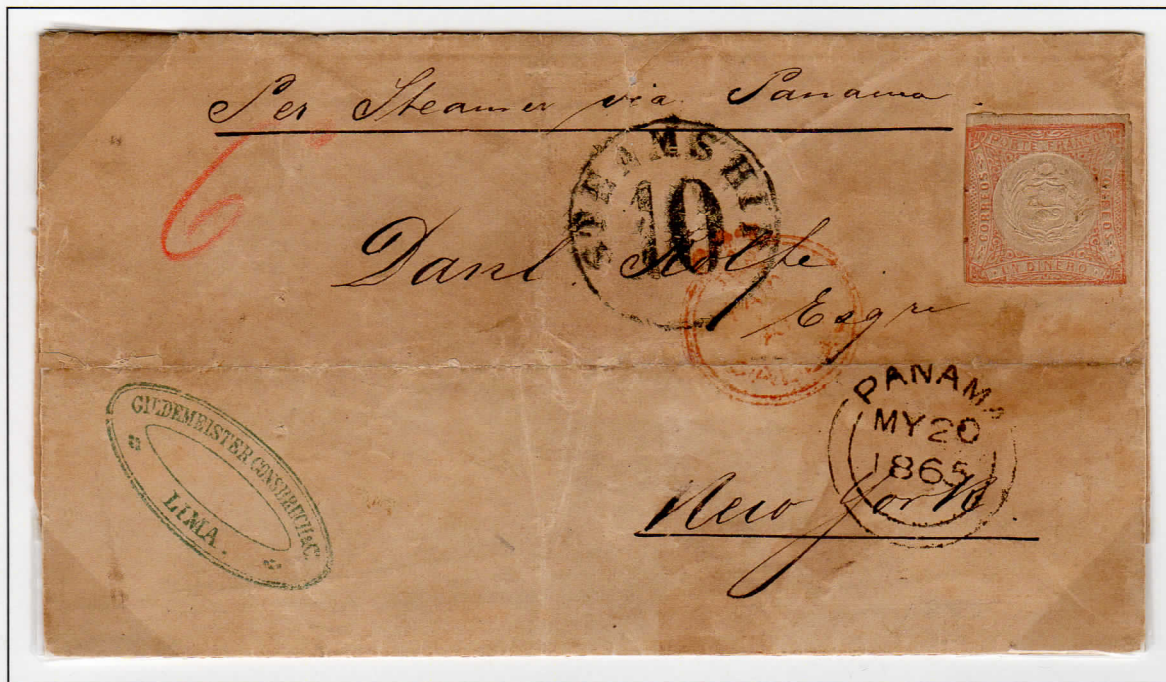 Per Steamer via Panama.
6
STEAMSHIP
10
PORTE FRANCO
CORREOS
UN DINERO
Danl.
Esqre
GILDEMEISTER CONSBRUCH & Cº.
LIMA.
PANAMA
MY 20
1865
New York.